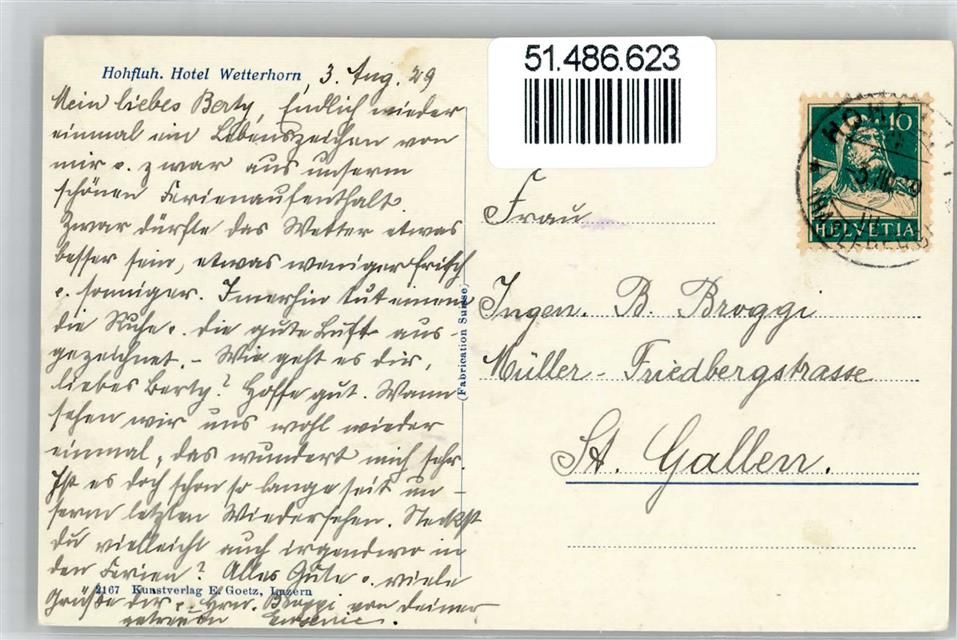 51.486.623
Hohfluh. Hotel Wetterhorn
3. Aug. 29
Mein liebes Berty, Endlich wieder
einmal ein Lebenszeichen von
mir u. zwar aus unserm
schönen Ferienaufenthalt.
Zwar dürfte das Wetter etwas
besser sein, etwas weniger frisch
u. sonniger. Imerhin tut einem
die Ruhe u. die gute Luft aus-
gezeichnet. – Wie geht es dir,
liebes Berty? Hoffe gut. Wann
sehen wir uns wohl wieder
einmal, das wundert mich sehr.
Ist es doch schon so lange seit un-
serm letzten Wiedersehen. Steckst
du vielleicht auch irgendwo in
den Ferien? Alles Gute u. viele
Grüße dir u. Hrn. Broggi von deiner
getreuen
2167 Kunstverlag E. Goetz, Luzern
(Fabrication Suisse)
10
HELVETIA
Frau
Ingen. B. Broggi
Müller-Friedbergstrasse
St. Gallen.